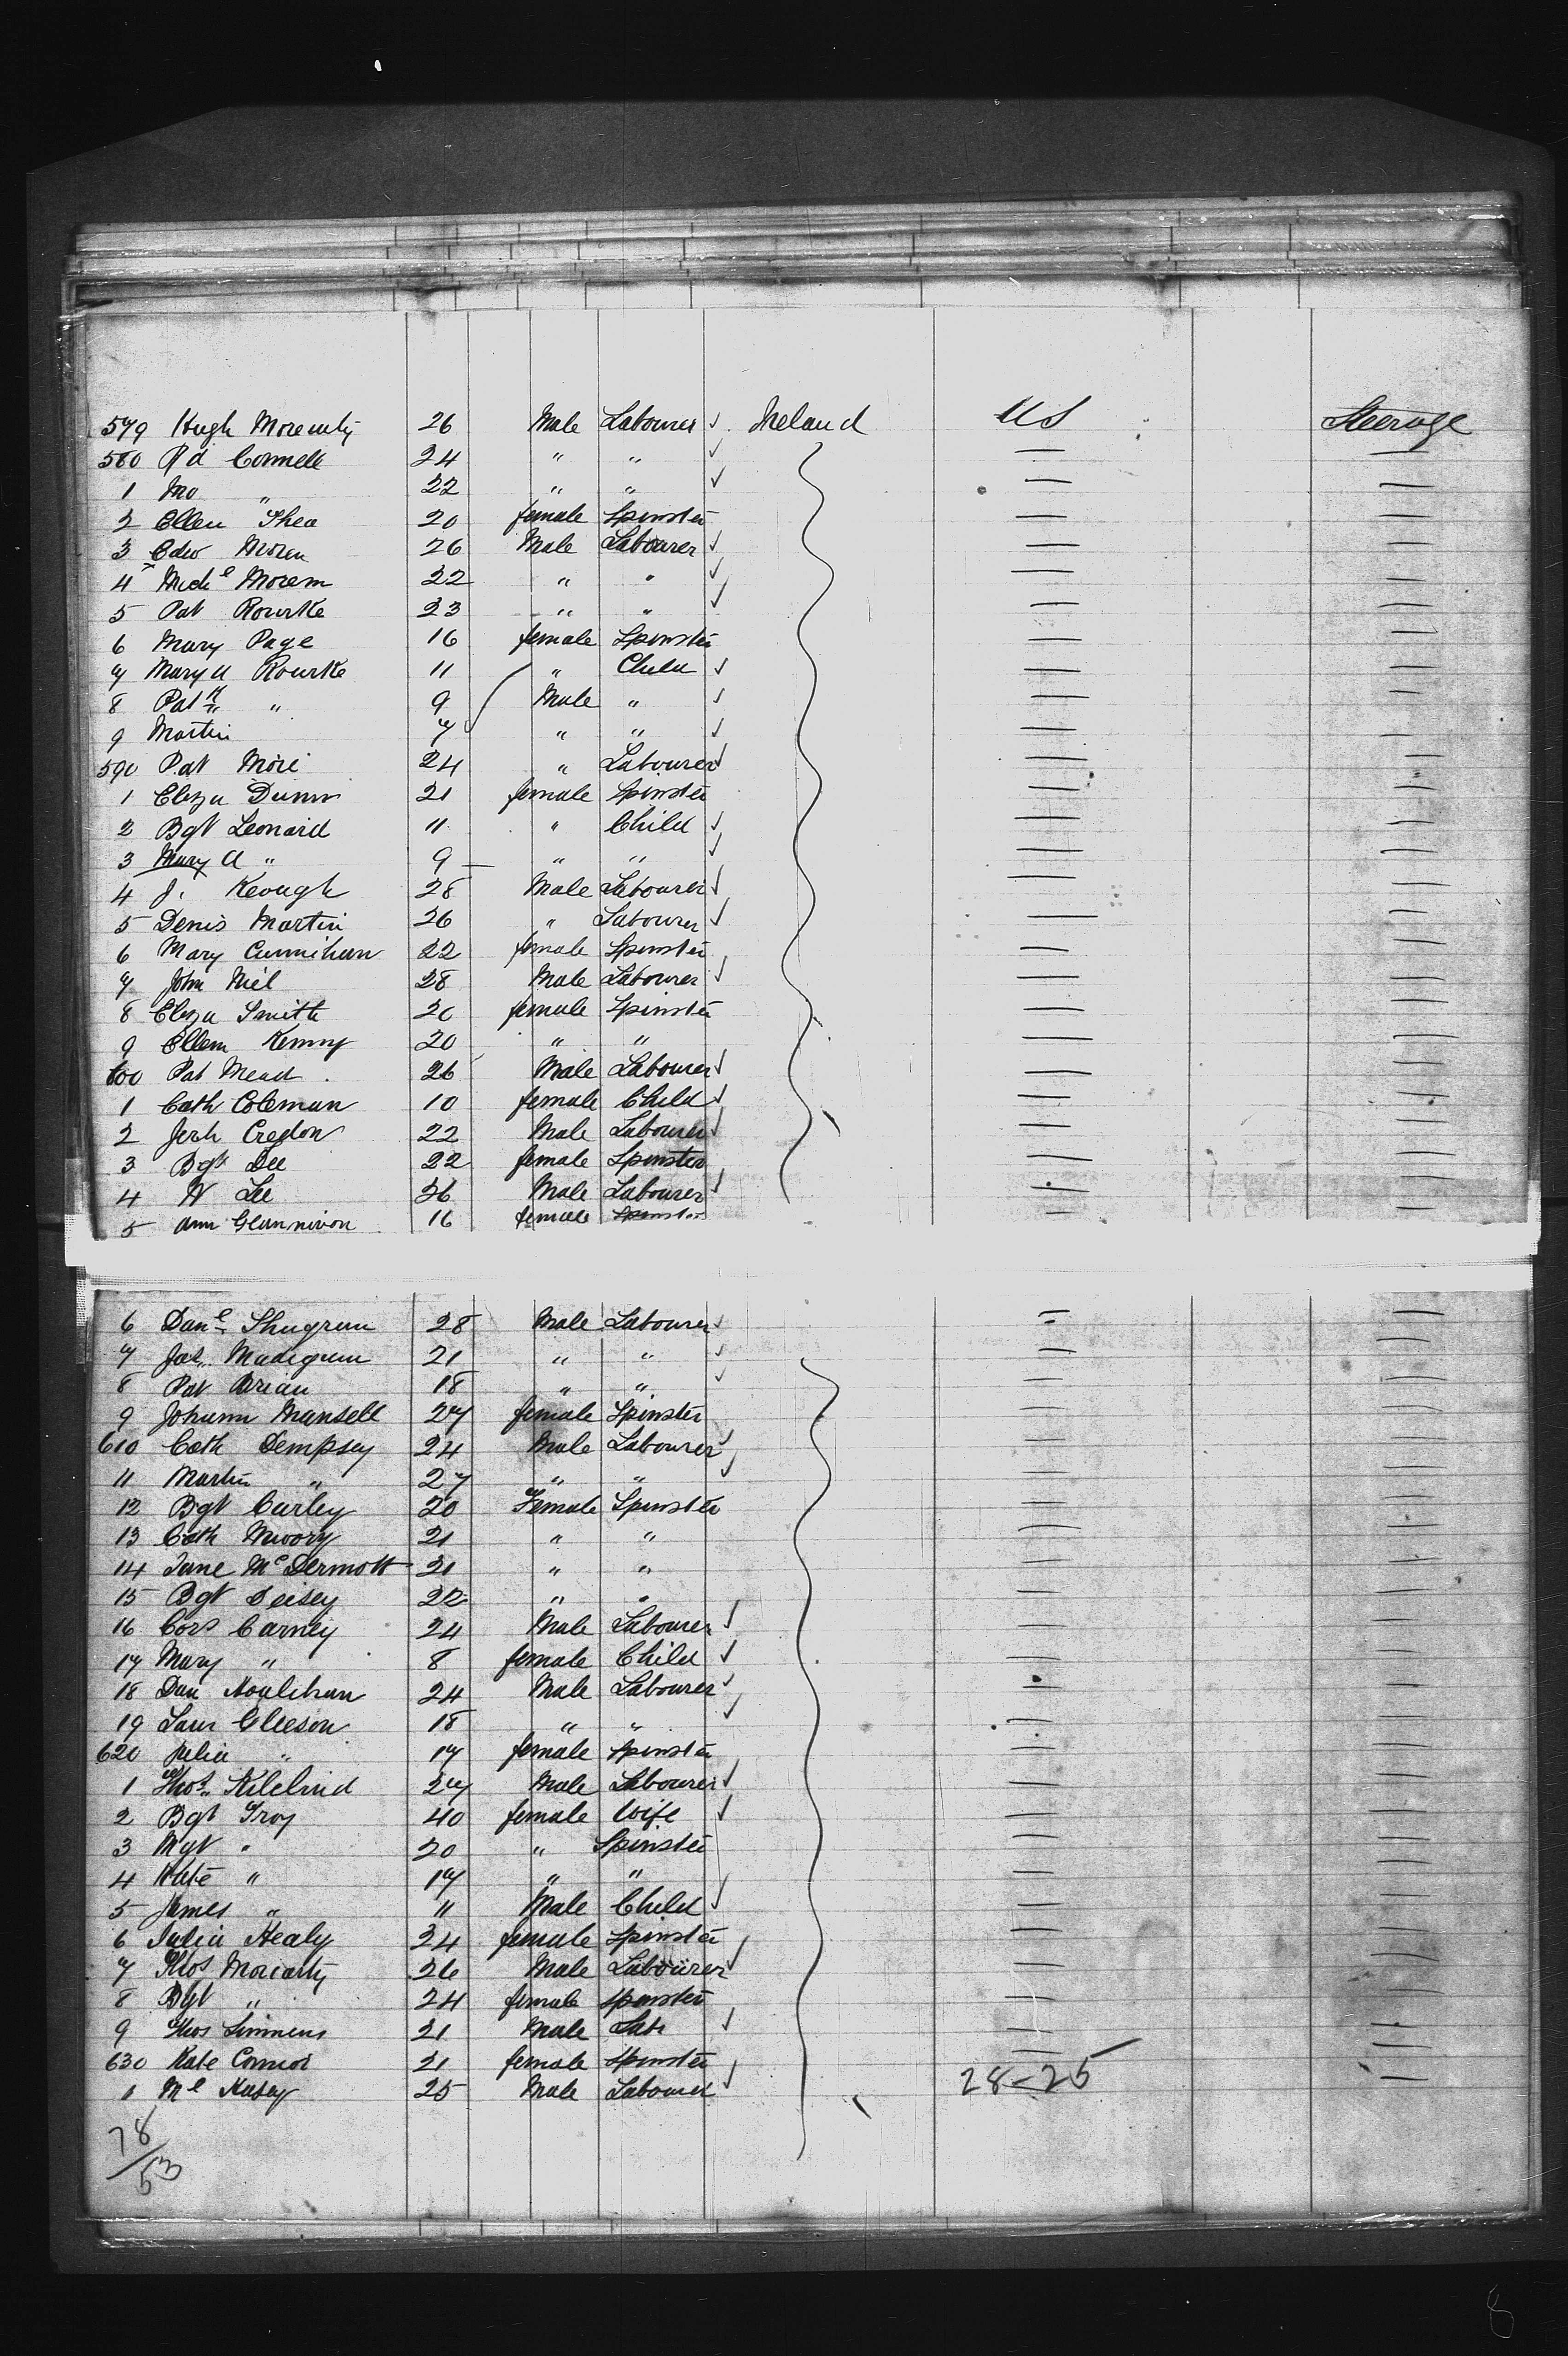 579 Hugh Moreuity 26 Male Labourer ✓ Ireland US Steerage
580 Rd Connell 24 " " ✓ — —
1 Mo " 22 " " ✓ — —
2 Ellen Shea 20 female Spinster — —
3 Edw Moren 26 Male Labourer ✓ — —
4 Michl Morem 22 " " ✓ — —
5 Pat Rourke 23 " " ✓ — —
6 Mary Page 16 female Spinster — —
7 Mary A Rourke 11 " Child ✓ — —
8 Patk " 9 Male " ✓ — —
9 Martin 7 " " ✓ — —
590 Pat More 24 " Labourer ✓ — —
1 Eliza Dunn 21 female Spinster — —
2 Bgt Leonard 11 " Child ✓ — —
3 Mary A " 9 — " " ✓ — —
4 J. Keough 28 Male Labourer ✓ — —
5 Denis Martin 26 " Labourer ✓ — —
6 Mary Cunnihan 22 female Spinster — —
7 John Niel 28 Male Labourer ✓ — —
8 Eliza Smith 20 female Spinster — —
9 Ellen Kenny 20 " " — —
600 Pat Mead 26 Male Labourer ✓ — —
1 Cath Coleman 10 female Child ✓ — —
2 Jerh Credon 22 Male Labourer ✓ — —
3 Bgt Dee 22 female Spinster — —
4 W Lee 36 Male Labourer ✓ — —
5 Ann Glannivon 16 female Spinster — —
6 Danl Shugrun 28 Male Labourer ✓ — —
7 Jas Madigun 21 " " ✓ — —
8 Pat Brian 18 " " ✓ — —
9 Johann Mansell 27 female Spinster — —
610 Cath Dempsey 24 Male Labourer ✓ — —
11 Martin " 27 " " ✓ — —
12 Bgt Curley 20 Female Spinster — —
13 Cath 21 " " — —
14 Jane McDermott 21 " " — —
15 Bgt Deisey 22 " " — —
16 Cors Carney 24 Male Labourer ✓ — —
17 Mary " 8 female Child ✓ — —
18 Dan Houlihan 24 Male Labourer ✓ — —
19 Laur Gleeson 18 " " ✓ — —
620 Julia " 17 female Spinster — —
1 Thos Kilelind 27 Male Labourer ✓ — —
2 Bgt Troy 40 female Wife ✓ — —
3 Mgt " 20 " Spinster — —
4 Kate " 17 " " — —
5 James " 11 Male Child ✓ — —
6 Julia Healy 24 female Spinster — —
7 Thos Moriarty 26 Male Labourer ✓ — —
8 Bgt " 24 female Spinster — —
9 Thos Simmens 21 Male Lab ✓ — —
630 Kate Connor 21 female Spinster — —
1 Ml Kasey 25 Male Labourer ✓ 28-25 —
78/53
8